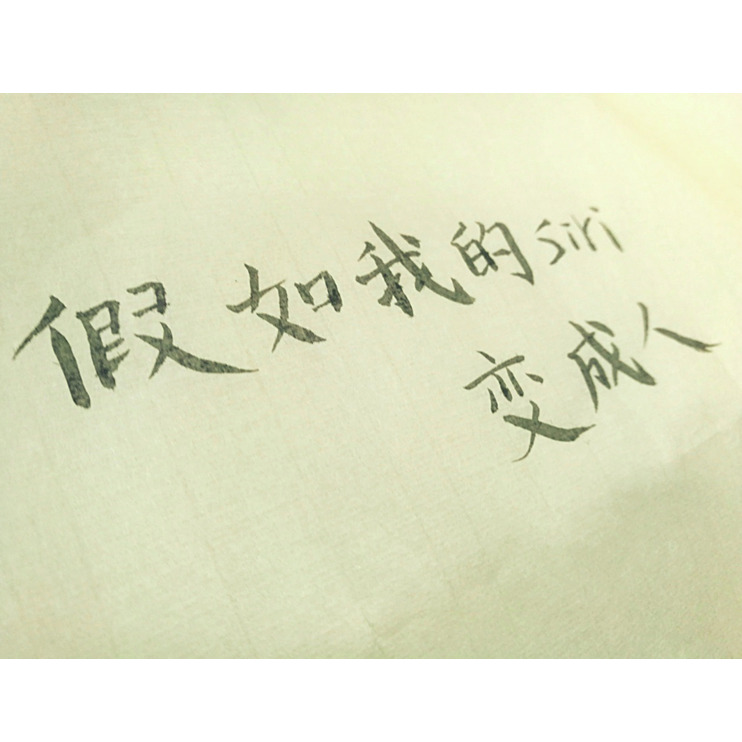 假如我的siri
变成人